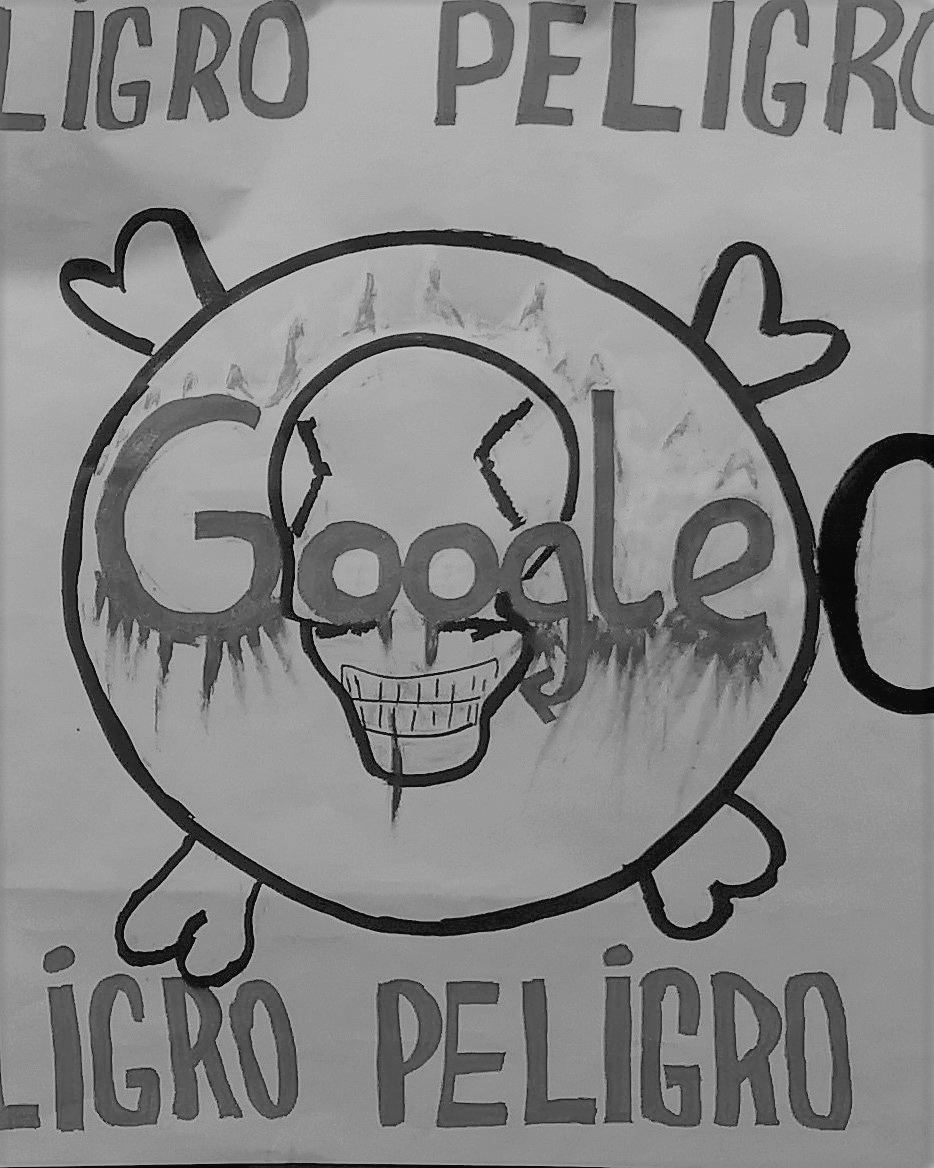 LiGRO PELIGRO
Google
LiGRO PELiGRO